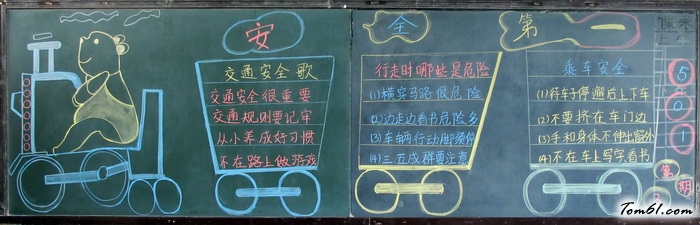 安全第一
交通安全歌
交通安全很重要
交通规则要记牢
从小养成好习惯
不在路上做游戏
行走时哪些是危险
(1)横穿马路很危险
(2)边走边看书危险多
(3)车辆行动脚须停
(4)三五成群要注意
乘车安全
(1)待车子停避后上下车
(2)不要挤在车门边
(3)手和身体不伸出窗外
(4)不在车上写字看书
501
第期
Tom61.com